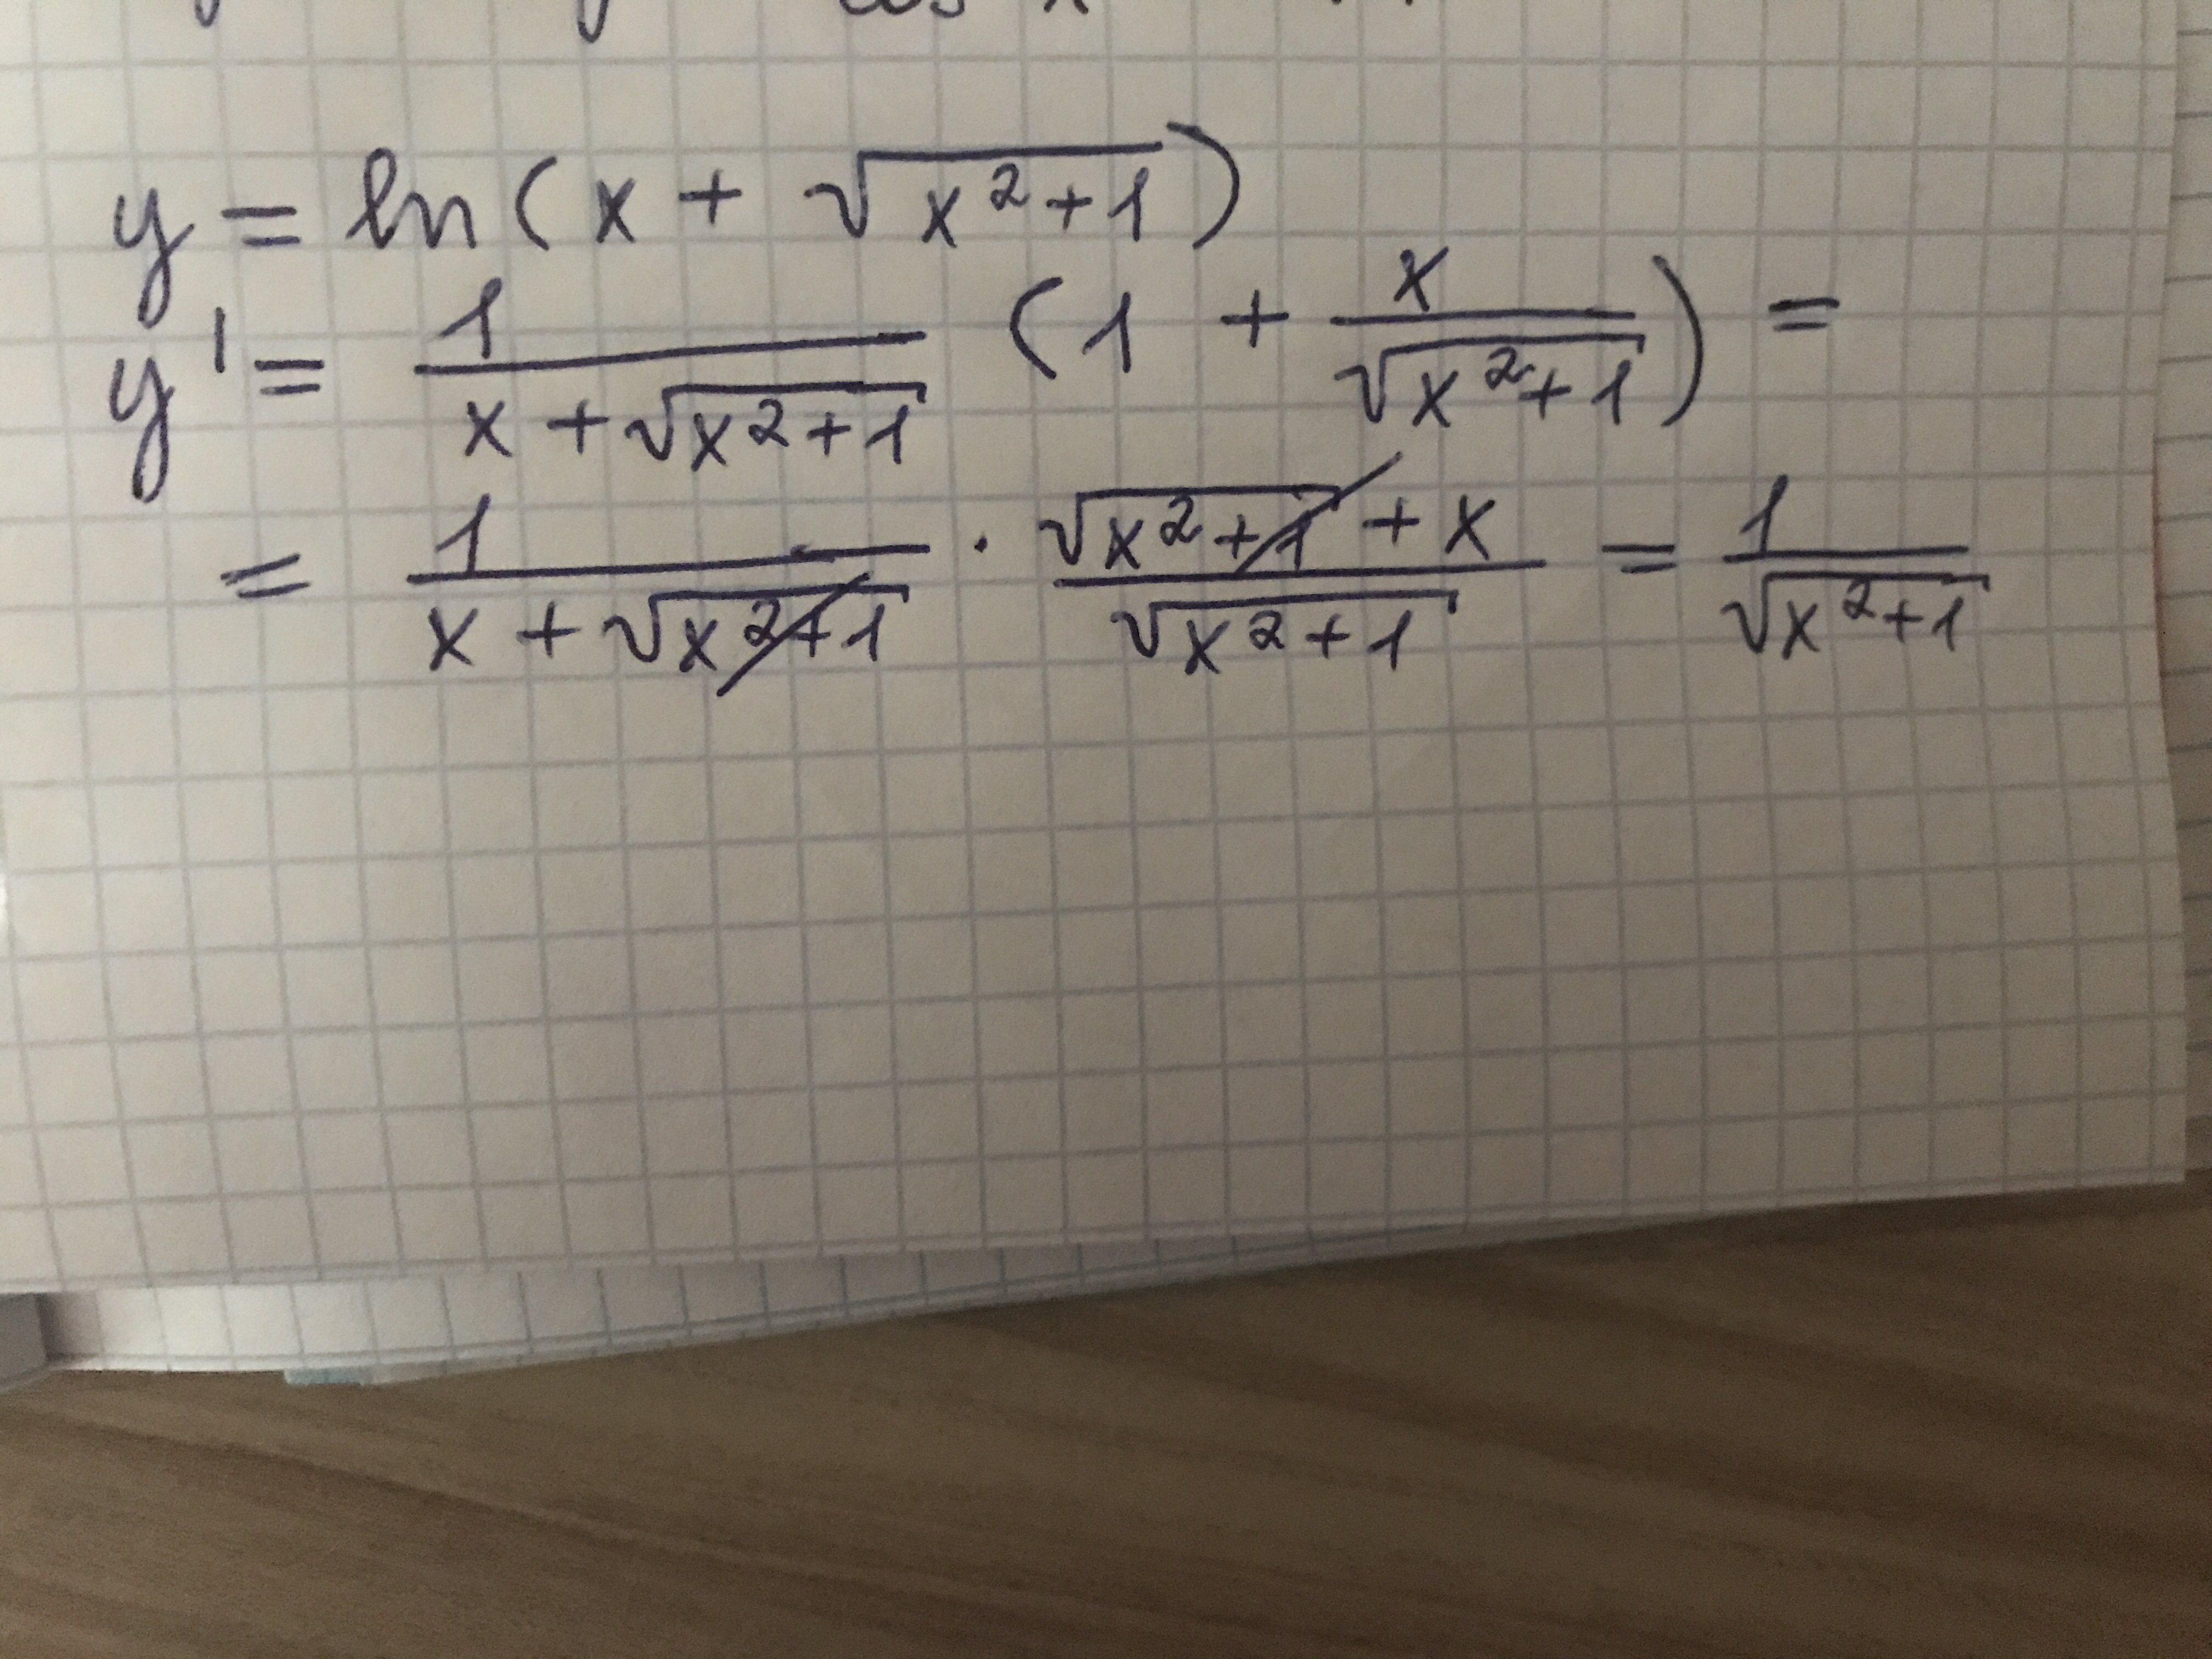 cos x
y = ln(x + √(x²+1))
y' = 1/(x+√(x²+1)) (1 + x/√(x²+1)) =
= 1/(x+√(x²+1)) · (√(x²+1) + x)/√(x²+1) = 1/√(x²+1)